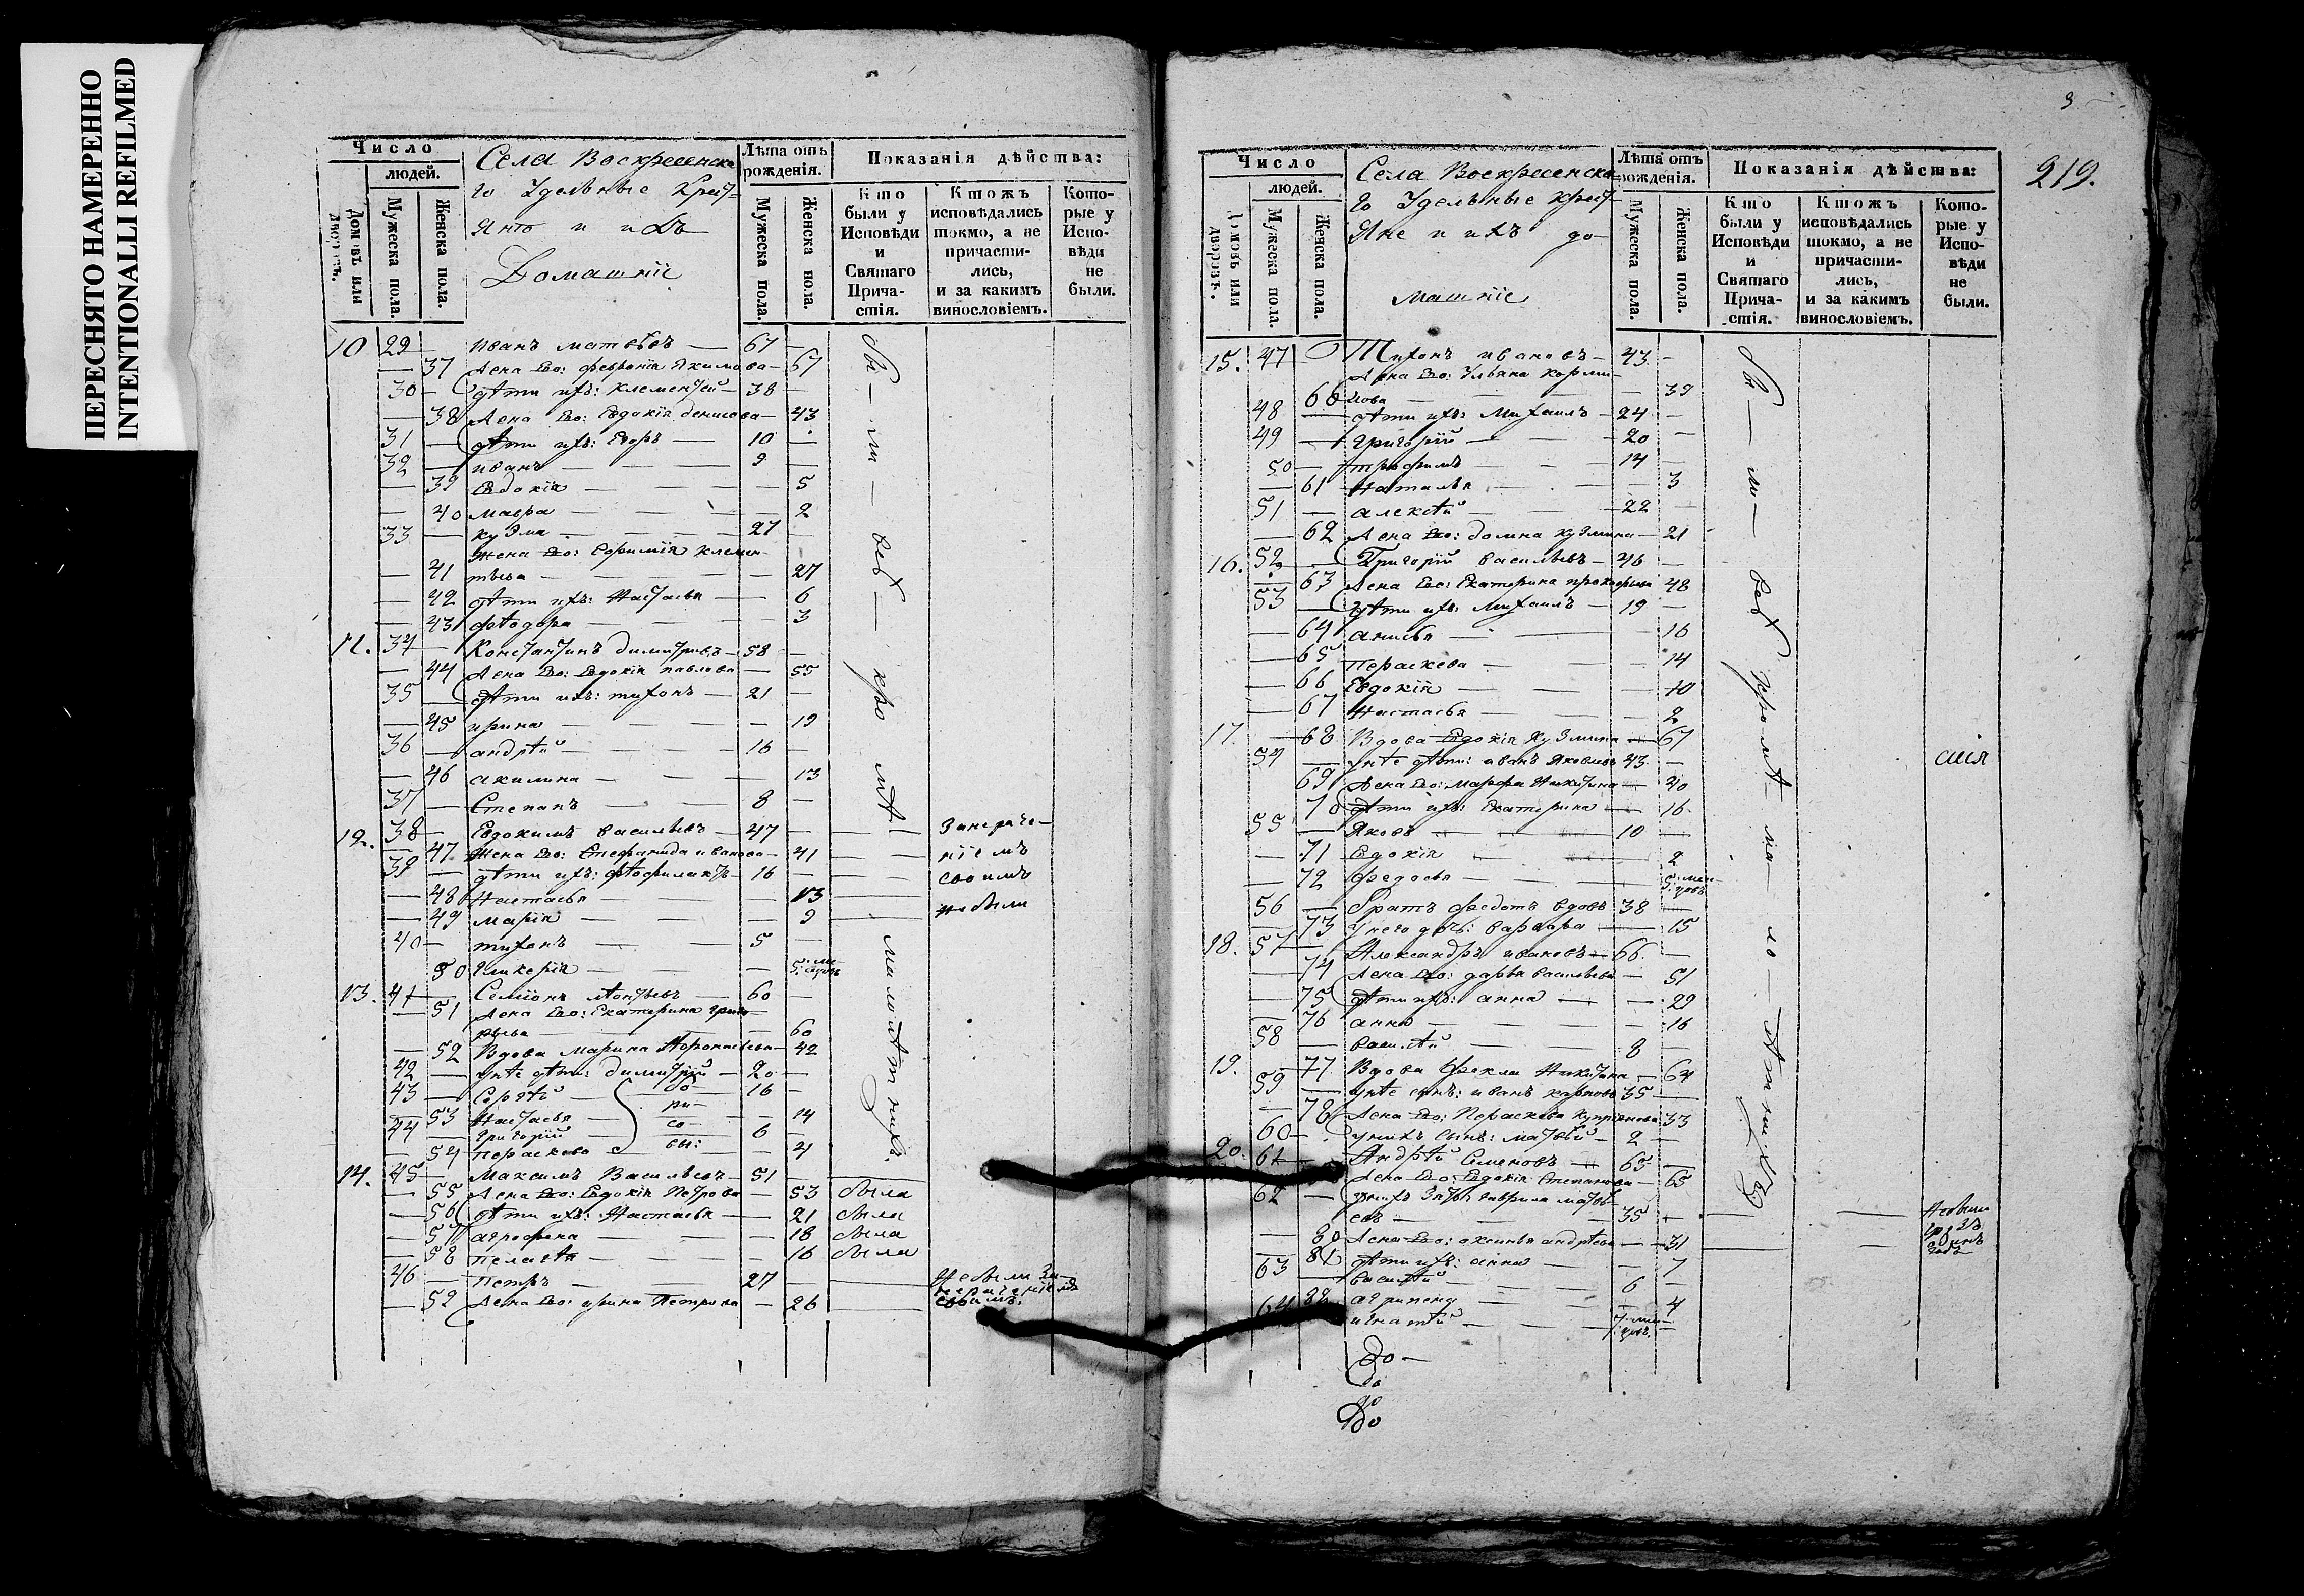 ПЕРЕСНЯТО НАМЕРЕННО
INTENTIONALLI REFILMED
Число
людей.
Домовъ или дворовъ.
Мужеска пола.
Женска пола.
Села Воскресенска
го Удельные крест-
яно и ихъ
Домашніе
Лѣта отъ рожденія.
Мужеска пола.
Женска пола.
Показанія дѣйства:
Кто были у Исповѣди и Святаго Прича-стія.
Ктожъ исповѣдались токмо, а не причасти-лись, и за какимъ винословіемъ.
Кото-рые у Испо-вѣди не были.
10 29 — Иванъ Матвѣевъ — 67 —
— 37 Жена Его: Февронія Якимова — 67
30 — дѣти ихъ: Клементей — 38 —
— 38 Жена Его: Евдокія Денисова — 43
31 — дѣти ихъ: Егоръ — 10 —
32 — Иванъ — 9 —
— 39 Евдокія — 5
— 40 Мавра — 2
33 — Кузма — 27 —
Жена Его: Ефимія Клемен
— 41 тьева — 27
— 42 дѣти ихъ: Настасья — 6
— 43 Фѣодора — 3
11. 34 — Константинъ Димитріевъ — 58 —
— 44 Жена Его: Евдокія Павлова — 55
35 — дѣти ихъ: Тихонъ — 21 —
— 45 Ирина — 19
36 — Андрѣй — 16 —
— 46 Акилина — 13
37 — Степанъ — 8 —
12. 38 — Евдокимъ Васильевъ — 47 — Занераче-
— 47 Жена Его: Стефанида Иванова — 41 — ніемъ
39 — дѣти ихъ: Фѣофилактъ — 16 — своимъ
— 48 Настасья — 13 небыли
— 49 Марія — 9
40 — Тихонъ — 5 —
50 Гликерія —
13. 41 — Семіонъ Лѣонтьевъ — 60 —
— 51 Жена Его: Екатерина Григо
рьева — 60
— 52 Вдова Марина — 42
42 — унее дѣти: Димитрій — 20 —
43 — Сергѣй — 16 —
— 53 Настасья — 14
44 — Григорій — 6 —
— 54 Пераскева — 4
14. 45 — Максимъ Васильевъ — 51 —
— 55 Жена Его: Евдокія Петрова — 53 была
— 56 дѣти ихъ: Настасья — 21 была
— 57 Агрофена — 18 была
— 58 Пелагѣя — 16 была
46 — Петръ — 27 — Небыли За-
нерачениемъ
— 59 Жена Его: Ирина Петрова — 26 — своимъ.
3
219.
Число
людей.
Домовъ или дворовъ.
Мужеска пола.
Женска пола.
Села Воскресенска
го Удельные крест-
яне и ихъ до-
машніе
Лѣта отъ рожденія.
Мужеска пола.
Женска пола.
Показанія дѣйства:
Кто были у Исповѣди и Святаго Прича-стія.
Ктожъ исповѣдались токмо, а не причасти-лись, и за какимъ винословіемъ.
Кото-рые у Испо-вѣди не были.
15. 47 Тихонъ Ивановъ — 43 —
Жена Его: Ульяна Корни-
60 лова — 39
48 — дѣти ихъ: Михаилъ — 24 —
49 — Григорій — 20 —
50 — Трофимъ — 14 —
— 61 Наталья — 3
51 — Алексѣй — 22 —
— 62 Жена Его: Домна Кузмина — 21
16. 52 — Григорій Васильевъ — 46 —
— 63 Жена Его: Екатерина Прокофиева 48
53 — дѣти ихъ: Михаилъ — 19 —
— 64 Анисья — 16
— 65 Пераскева — 14
— 66 Евдокія — 10
— 67 Настасья — 2
17. — 68 Вдова Евдокія Кузмина — 67
54 — унее дѣти: Иванъ Яковлевъ 43 —
69 Жена Его: Марфа Никитина — 40
70 дѣти ихъ: Екатерина — 16
55 — Яковъ — 10 —
— 71 Евдокія — 2
— 72 Федосья —
56 — Братъ Федотъ вдовъ 38 —
— 73 У него дочь: Варвара — 15
18. 57 — Александръ Ивановъ — 66 —
— 74 Жена Его: Дарья Васильева — 51
— 75 дѣти ихъ: Анна — 29
— 76 Анна — 16
58 — Василѣй — 8 —
19. — 77 Вдова Фекла Никитина — 64
59 — унее сынъ: Иванъ Карповъ 35 —
— 78 Жена Его: Пераскева Куприянова 33
60 — унихъ сынъ: Матвѣй — 2 —
20. 61 — Андрѣй Семеновъ — 65 —
Жена Его: Евдокія Степанова — 65
62 — унихъ Зять Гаврила Матвѣ-
евъ — 35 — Небыли
— 80 Жена Его: Аксинья Андрѣева — 31
— 81 дѣти ихъ: Анна — 7
63 — Василѣй — 6 —
— 82 Агрипена — 4
64 — Игнатѣй —
До —
до
до
До